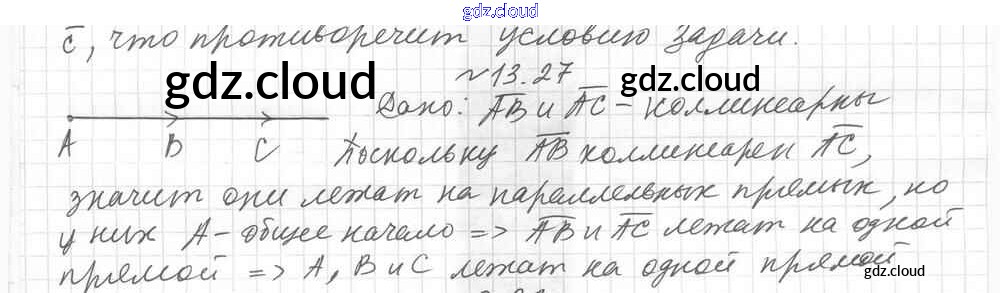 gdz.cloud
c̅, что противоречит условию задачи.
gdz.cloud
gdz.cloud
№13.27
Дано: A̅B̅ и A̅C̅ - коллинеарны
A B C
Поскольку A̅B̅ коллинеарен A̅C̅,
значит они лежат на параллельных прямых, но
у них А - общее начало => A̅B̅ и A̅C̅ лежат на одной
прямой => А, В и С лежат на одной прямой
gdz.cloud